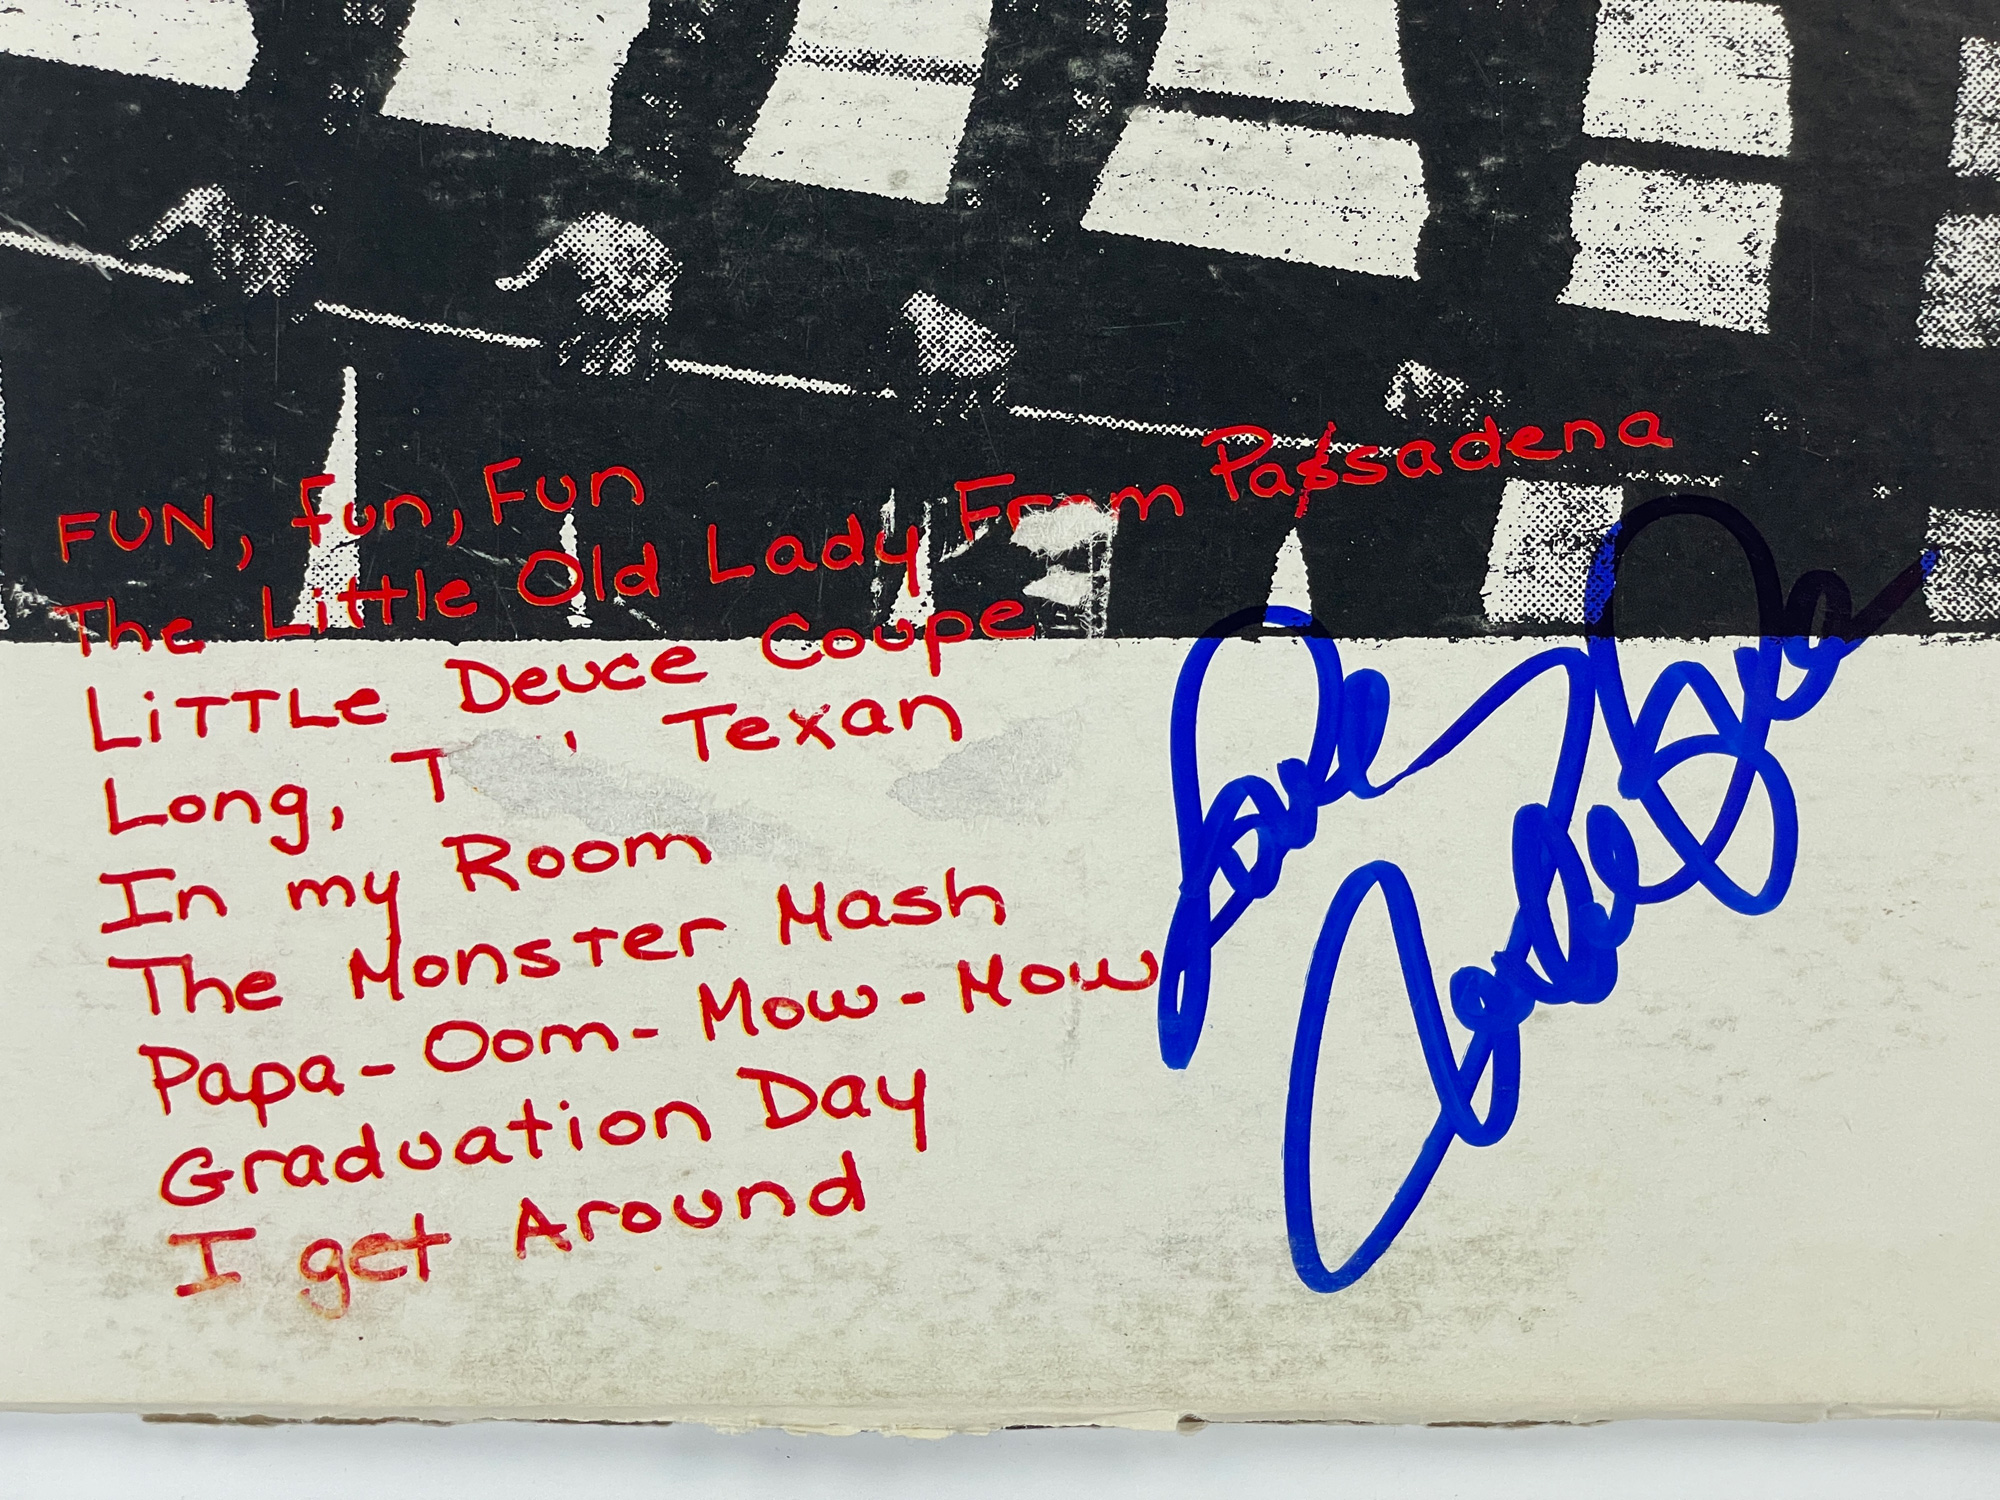 FUN, fun, Fun
The Little Old Lady From Passadena
LiTTLe Deuce Coupe
Long, T Texan
In my Room
The Monster Mash
Papa-Oom-Mow-Mow
Graduation Day
I get Around
Love